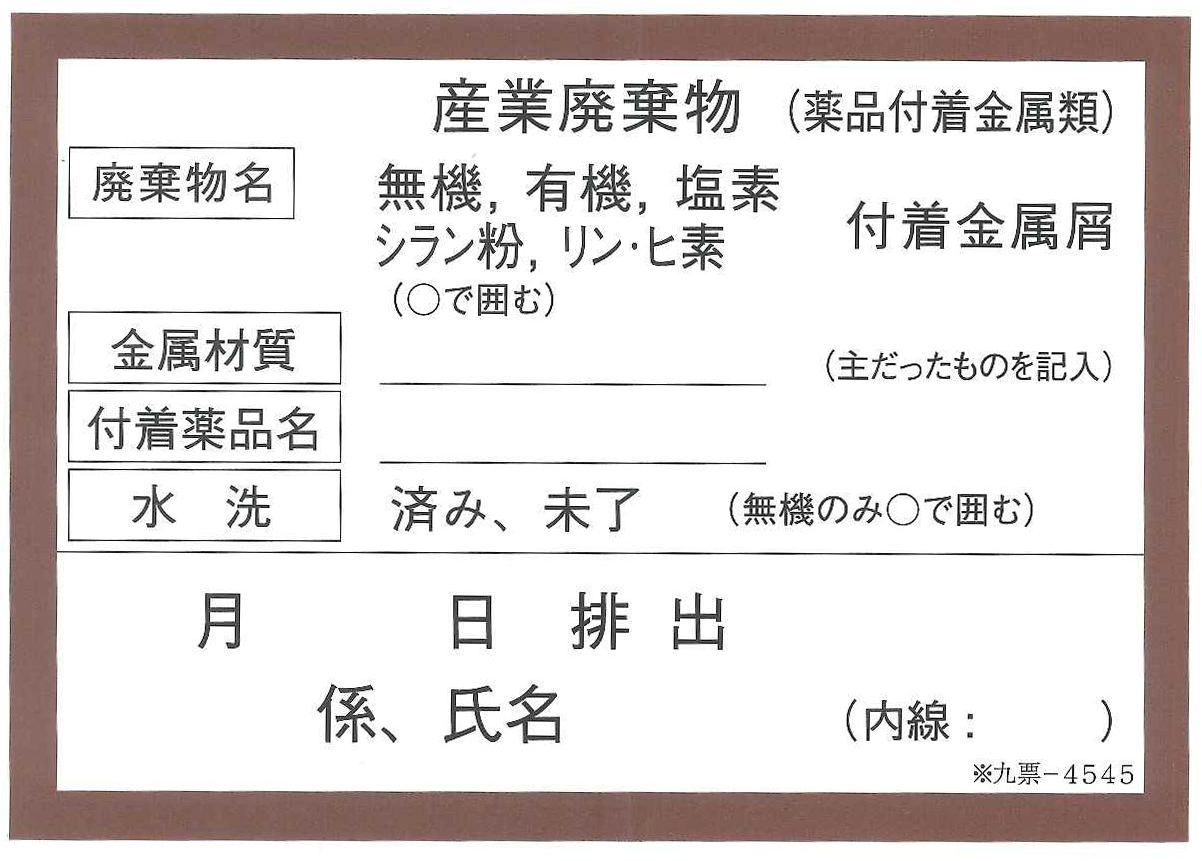 産業廃棄物 （薬品付着金属類）
廃棄物名 無機, 有機, 塩素
シラン粉, リン・ヒ素 付着金属屑
（○で囲む）
金属材質 （主だったものを記入）
付着薬品名
水　洗 済み、未了 （無機のみ○で囲む）
月 日 排 出
係、氏名 （内線： ）
※九票−4545